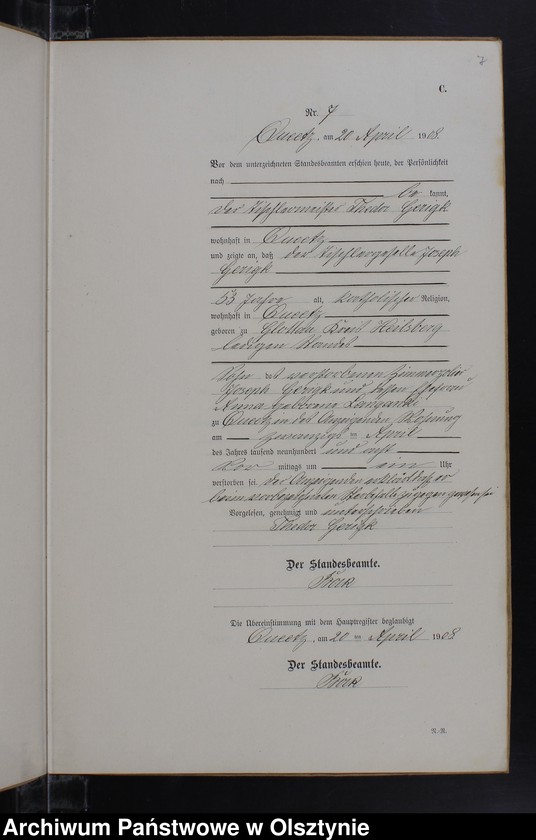 7
C.
Nr. 7
Queetz, am 20 April 1908.
Vor dem unterzeichneten Standesbeamten erschien heute, der Persönlichkeit
nach
be kannt,
der Tischlermeister Theodor Gerigk
wohnhaft in Queetz
und zeigte an, daß der Tischlergeselle Joseph
Gerigk
53 Jahre alt, katholischer Religion,
wohnhaft in Queetz
geboren zu Glottau Kreis Heilsberg
ledigen Standes
Sohn des verstorbenen Joseph Gerigk und dessen Ehefrau
Anna geborene Langanki
zu Queetz in des Anzeigenden Wohnung
am zwanzigsten April
des Jahres tausend neunhundert und acht
Vor mittags um ein Uhr
verstorben sei. Der Anzeigende erklärt daß er
beim vorbezeichneten Sterbefalle zugegen gewesen sei
Vorgelesen, genehmigt und unterschrieben
Theodor Gerigk
Der Standesbeamte.
Die Übereinstimmung mit dem Hauptregister beglaubigt
Queetz, am 20 ten April 1908
Der Standesbeamte.
N.-R.
Archiwum Państwowe w Olsztynie